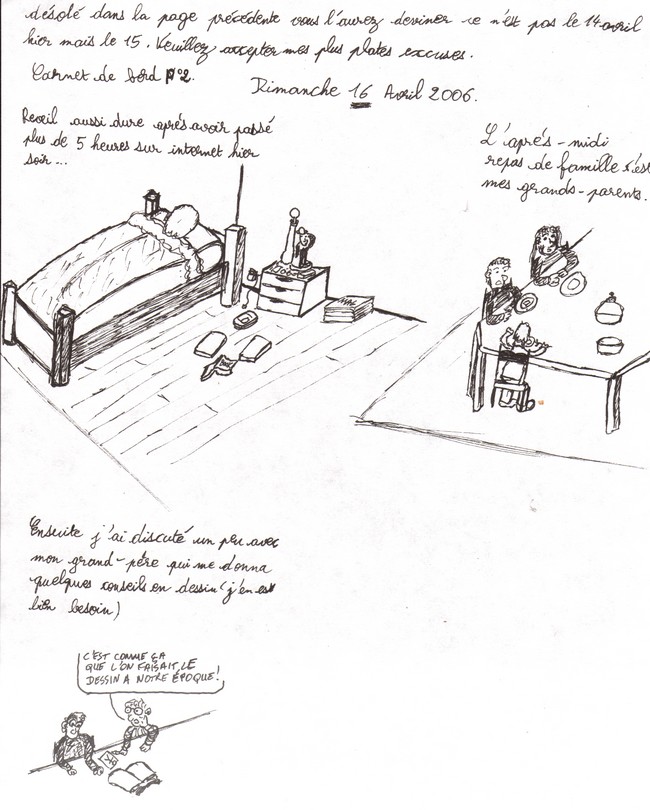 désolé dans la page précédente vous l'aurez deviner ce n'est pas le 14 avril
hier mais le 15. Veuillez accepter mes plus plates excuses.
Carnet de bord N°2.
Dimanche 16 Avril 2006.
Reveil aussi dure aprés avoir passé
plus de 5 heures sur internet hier
soir...
L'aprés-midi
repas de famille c'est
mes grands-parents.
Ensuite j'ai discuté un peu avec
mon grand-pére qui me donna
quelques conseils en dessin (j'en est
bien besoin)
C'EST COMME ÇA
QUE L'ON FAISAIT, LE
DESSIN A NOTRE ÉPOQUE!